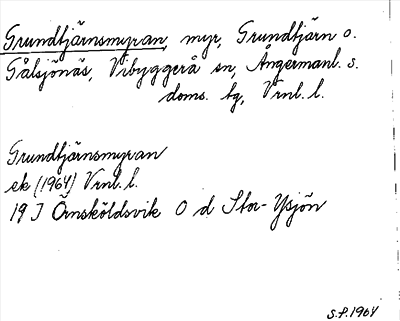 Grundtjärnsmyran, myr, Grundtjärn o.
Gålsjönäs, Vibyggerå sn, Ångermanl. s.
doms. tg, Vrnl. l.
Grundtjärnsmyran
ek (1964) Vrnl. l.
19 I Örnsköldsvik O d Stor-Ysjön
S.F. 1964